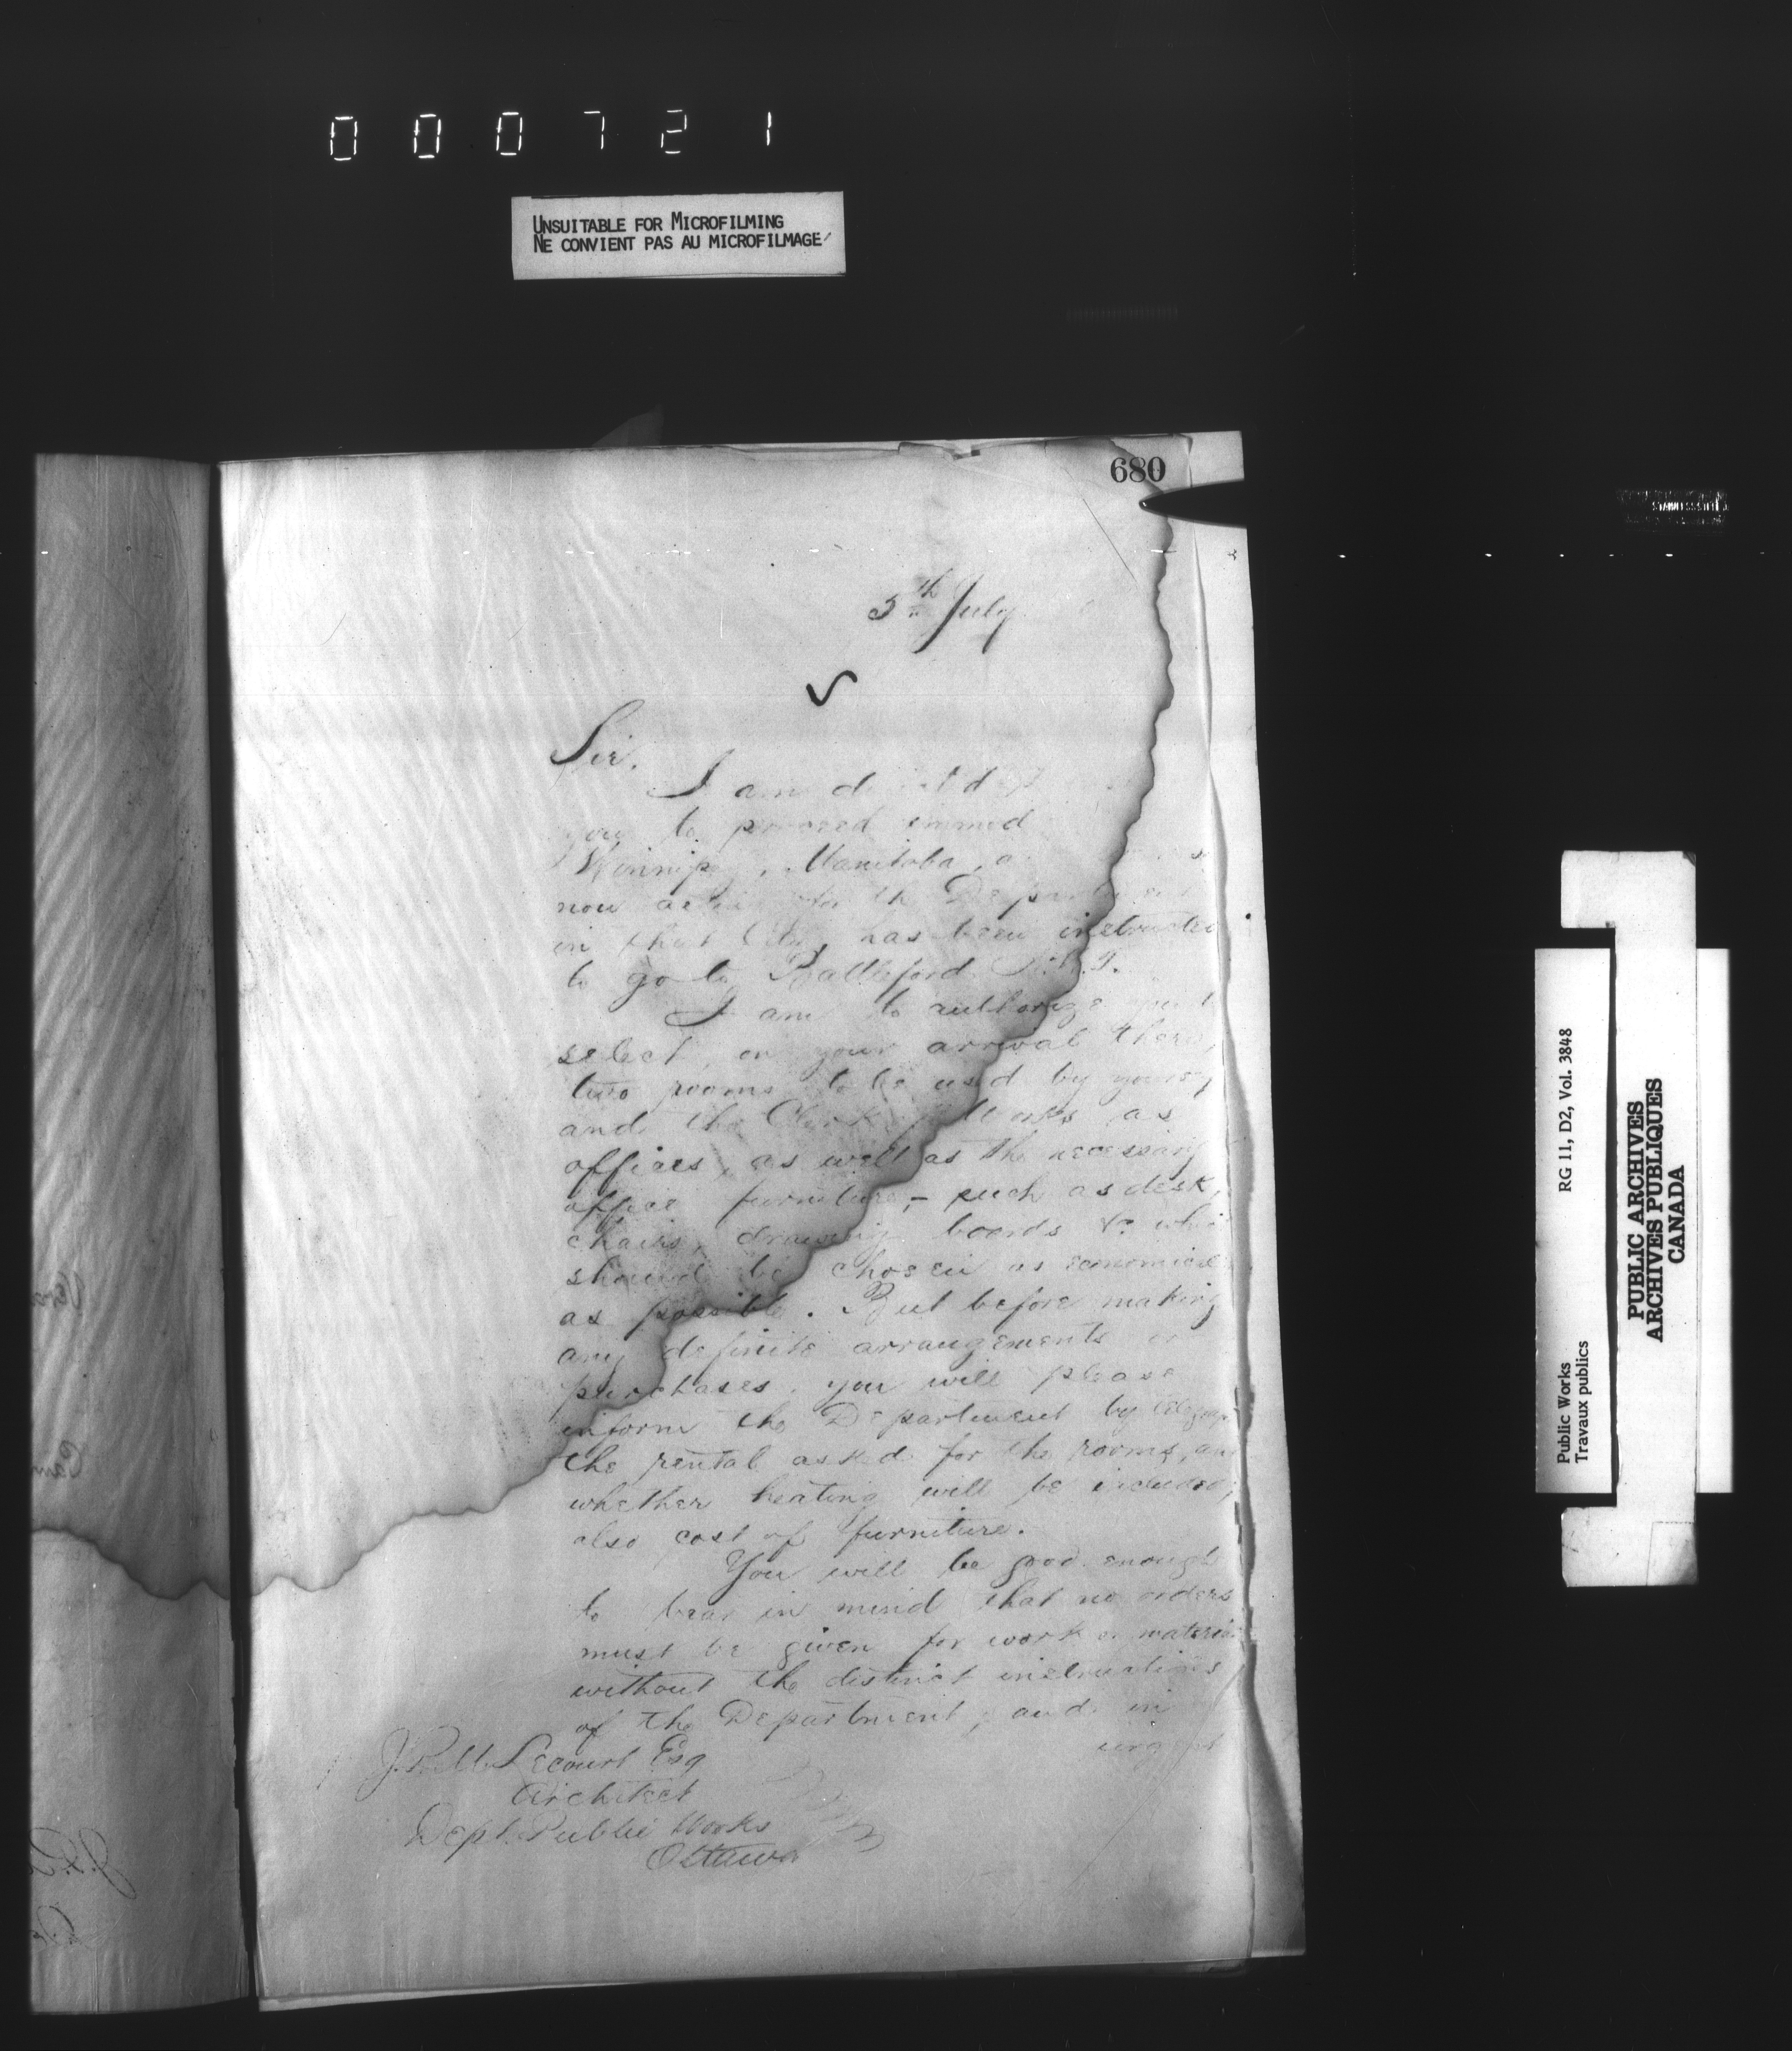 000721
UNSUITABLE FOR MICROFILMING
NE CONVIENT PAS AU MICROFILMAGE
680
5th July
Sir,
I am d
you to proceed immed
Winnipeg, Manitoba, a
now acting for the Department
in that City, has been instructed
to go to Battleford N.W.T.
I am to authorize you t
select, on your arrival there,
two rooms to be used by yours
and the Clerk of Works as
offices, as well as the necessary
office furniture, - such as desk,
chairs, drawing boards &c. whi
should be chosen as economical
as possible. But before making
any definite arrangements or
purchases, you will please
inform the Department by telegrap
the rental asked for the rooms, an
whether heating will be included,
also cost of furniture.
You will be good enough
to bear in mind that no orders
must be given for work or materia
without the distinct instructions
of the Department, and in
urgent
Lecourt Esq
Architect
Dept. Public Works
Ottawa
Public Works
Travaux publics
RG 11, D2, Vol. 3848
PUBLIC ARCHIVES
ARCHIVES PUBLIQUES
CANADA